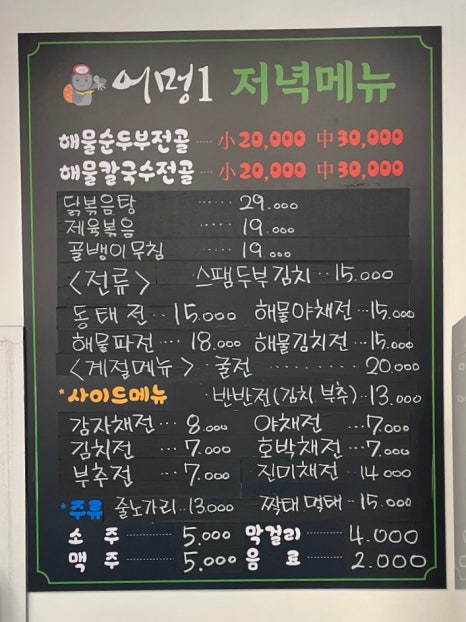 어멍1 저녁메뉴
해물순두부전골 ····· 小 20,000 中 30,000
해물칼국수전골 ····· 小 20,000 中 30,000
닭볶음탕 ······ 29.000
제육볶음 ···· 19.000
골뱅이무침 ···· 19.000
<전류> · 스팸두부김치 ·· 15.000
동태전 ·· 15.000 해물야채전 ·· 15.000
해물파전 ··· 18.000 해물김치전 ·· 15.000
<계절메뉴> · 굴전 ········· 20.000
*사이드메뉴 · 반반전(김치 부추) ·· 13.000
감자채전 ··· 8.000 야채전 ··· 7.000
김치전 ··· 7.000 호박채전 ·· 7.000
부추전 ··· 7.000 진미채전 ·· 14.000
*주류 줄노가리 ·· 13.000 짝태 먹태 ·· 15.000
소주 ········· 5.000 막걸리 ······· 4.000
맥주 ········· 5.000 음료 ······· 2.000